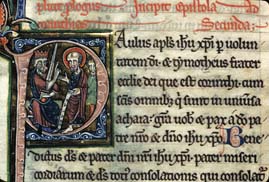 plicit plogus. Incipit epistola Ad
Secunda.
Paulus apls ihu xpi p uolun
di. & tymotheus frater
ecclie dei que est corinthi cum
scis omnib; q sunt in uniusa
achaia. gra uob & pax a do pa
tre nro & dno ihu xpo. Bene
dictus ds & pater dni nri ihu xpi. pater miseri
cordiarum & ds consolationis qui consolat